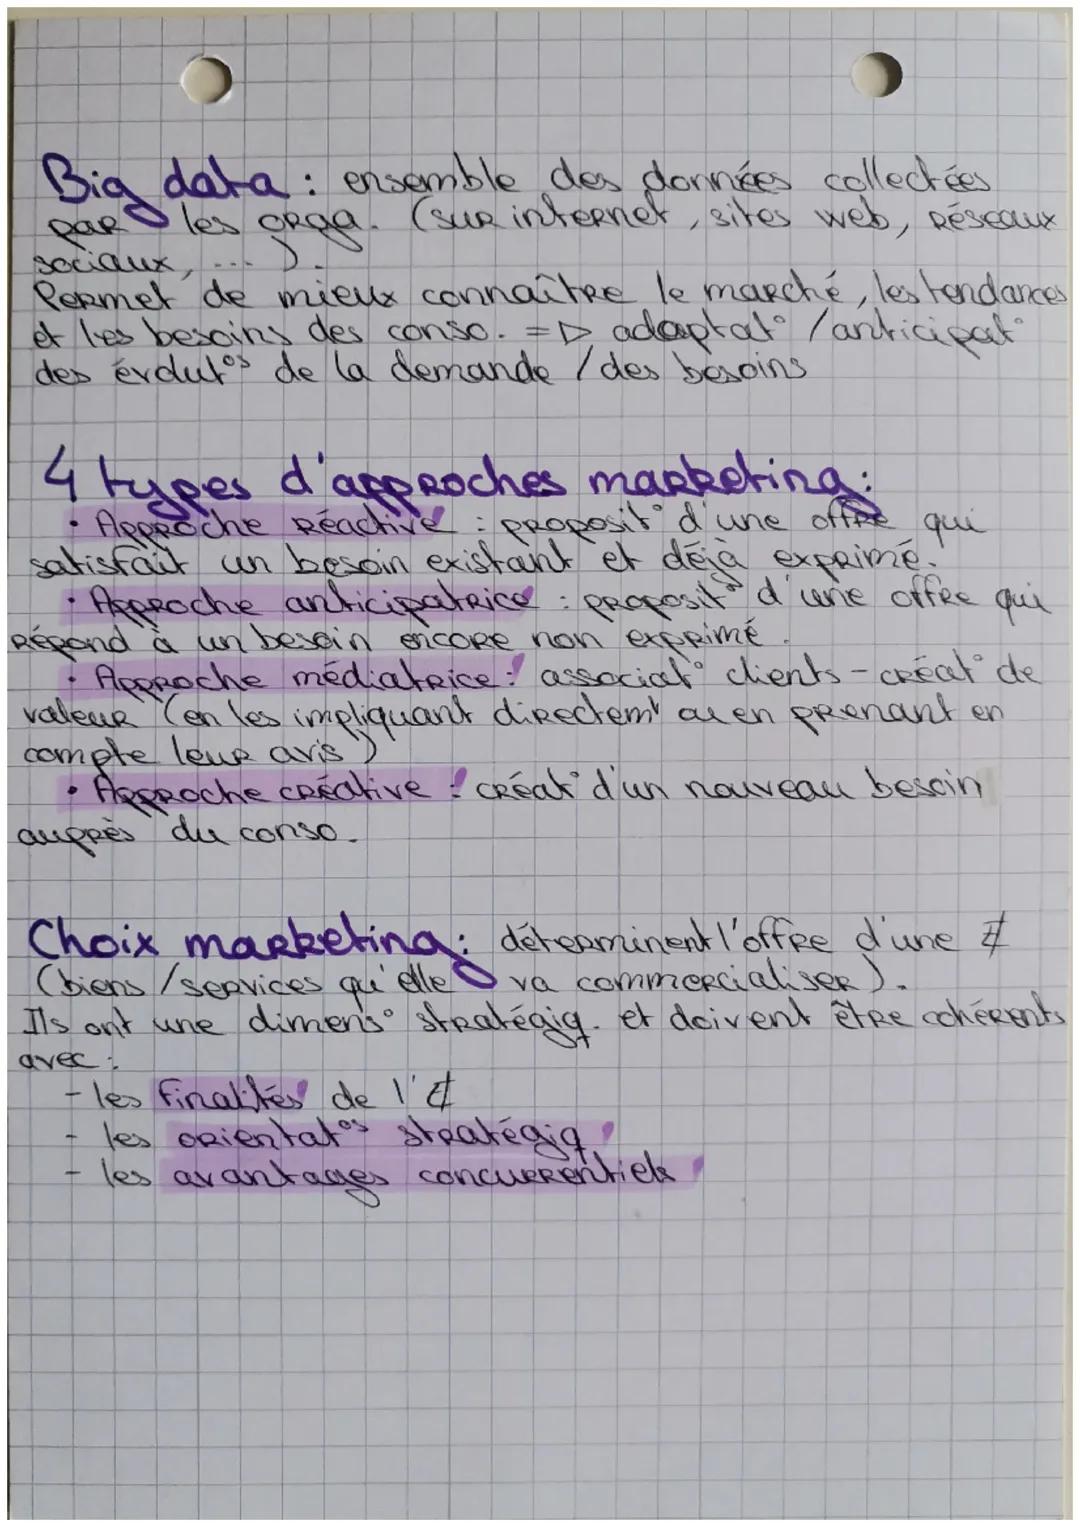 Big data : ensemble des données collectées
par les orga. (sur internet, sites web, réseaux
sociaux, ...).
Permet de mieux connaître le marché, les tendances
et les besoins des conso. => adaptat° /anticipat°
des évolut°s de la demande / des besoins
4 types d'approches marketing :
• Approche réactive : proposit° d'une offre qui
satisfait un besoin existant et déjà exprimé.
• Approche anticipatrice : proposit° d'une offre qui
répond à un besoin encore non exprimé.
• Approche médiatrice : associat° clients - créat° de
valeur (en les impliquant directemt ou en prenant en
compte leur avis)
• Approche créative : créat° d'un nouveau besoin
auprès du conso.
Choix marketing : déterminent l'offre d'une
(biens / services qu'elle va commercialiser).
Ils ont une dimens° stratégiq. et doivent être cohérents
avec :
- les finalités de l'
- les orientat°s stratégiq
- les avantages concurrentiels